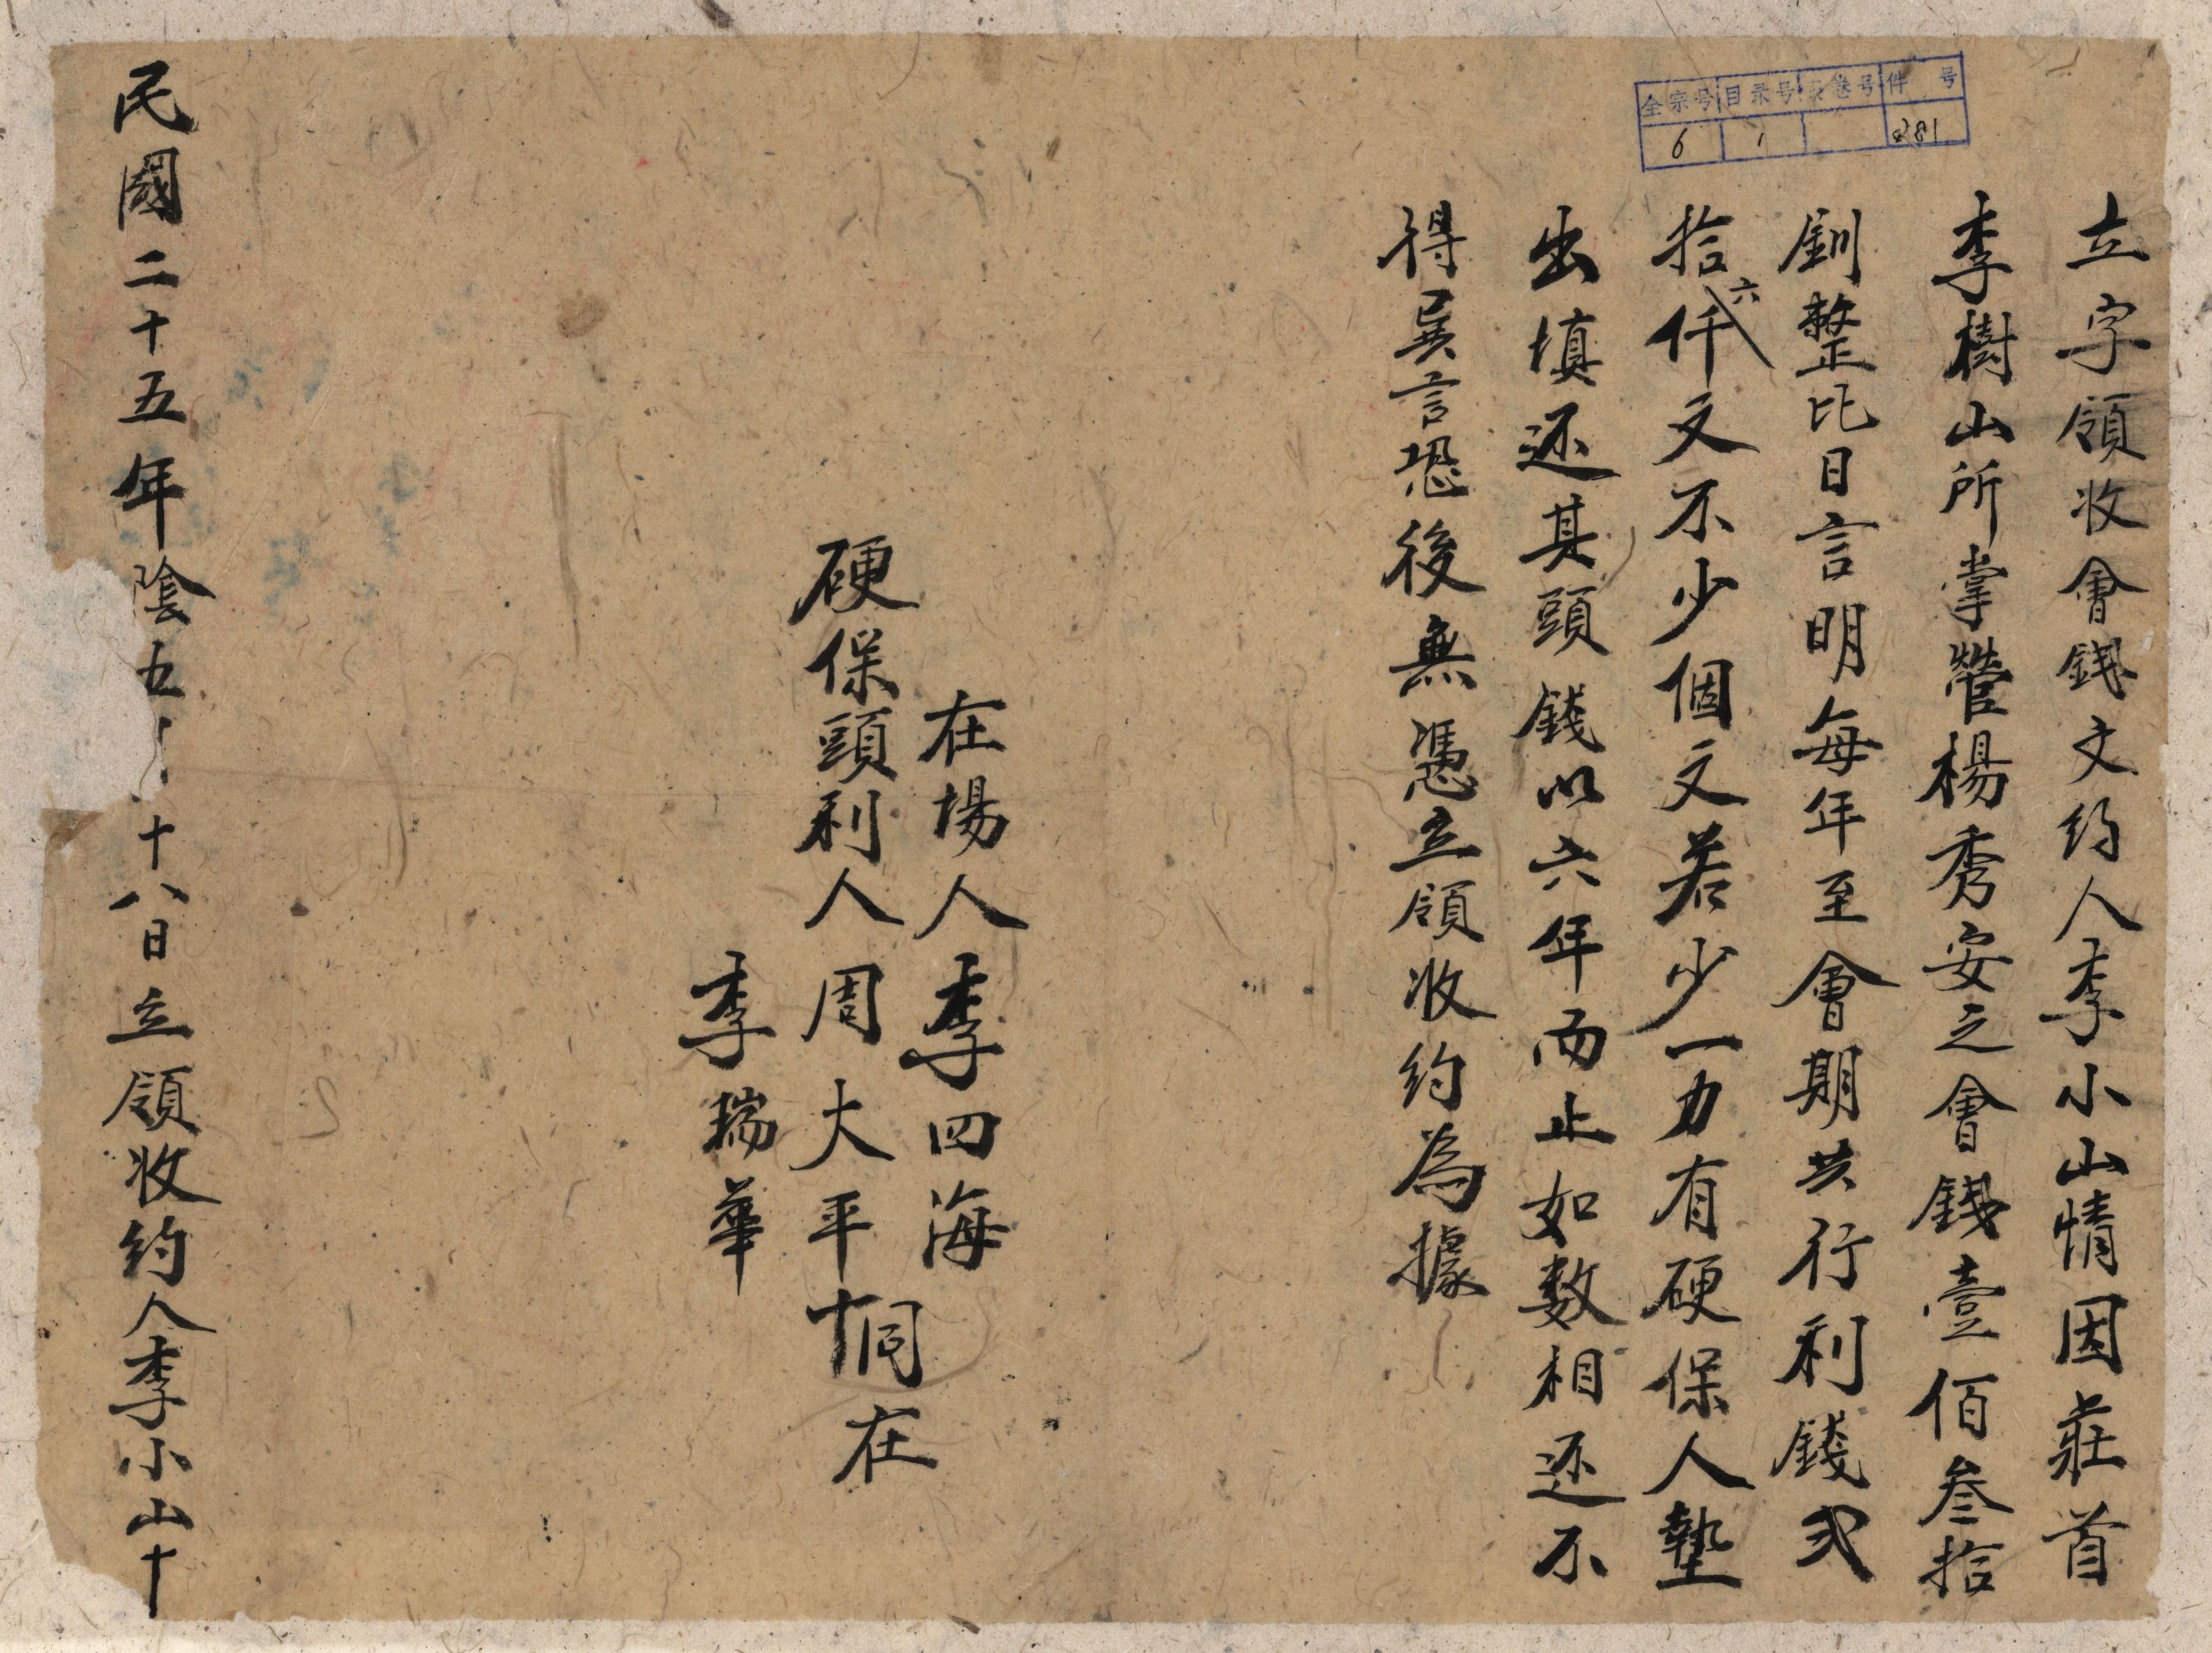 全宗号 目录号 卷号 件号
6 1 281
立字領收會錢文约人李小山情因莊首
李樹山所掌營楊秀安之會錢壹佰叁拾
釧整比日言明每年至會期共行利錢弍
拾六仟文不少個文若少一力有硬保人墊
出填还其頭錢以六年而止如数相还不
得異言恐後無憑立領收约為據
在場人李四海
硬保頭利人周大平十同在
李瑞華
民國二十五年陰五 十八日立領收约人李小山十